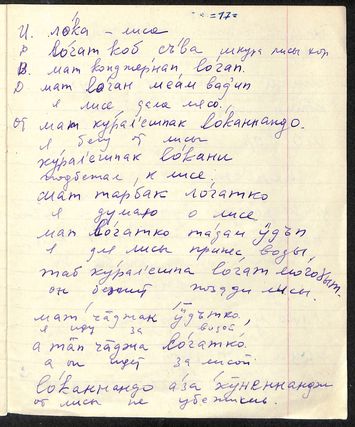 =17=
И. ло́ка – лиса
Р во́гат коб съ̄ва шкура лисы хор
В. мат конджернап во́гап.
D мат во́ган меа́м вадип
я лисе дала мясо.
От мат ку́рал'ешпак ло́каннандо.
я бегу от лисы
ку́рал'ешпак ло́кани
подбежал к лисе
мат тарбак ло́гатко
я думаю о лисе
мат ло́гатко та́дап ӱдъп
я для лисы принес воды,
таб ку́рал'ешпа ло́гат
он бежит позади лисы.
мат ча̄джак ӱдътко,
я иду за водой
а тап ча̄джа ло́гатко.
а он идет за лисой.
ло́каннандо а́за
от лисы не убежишь.